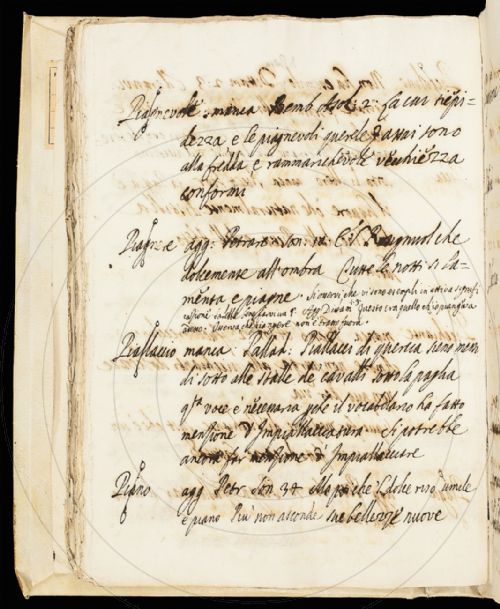 Piagnevole. manca Bemb Asol: 2: la cui tiepi=
dezza e le piagnevoli querele d assai sono
alla fredda e rammarichevole vecchiezza
conformi
Piagnere agg: Petrarc Son: E'l Rusignuol che
dolcemente all'ombra Tutte le notti si la=
menta e piagne. Si osservi che vi sono esempli in
questo era quello ch'io piangeva
piangere non è
Piallaccio manca: Pallad: Piallacci di quercia sieno messi
di sotto alle stalle de cavalli sotto la paglia
qsta voce è necessaria perche il vocabolario ha fatto
menzione d Impiallacciatura si potrebbe
ancora far menzione d Impiallacciare
Piano agg Petr Son 34 Ma poi che'l dolce riso umile
e piano Più non asconde sue bellezze nuove